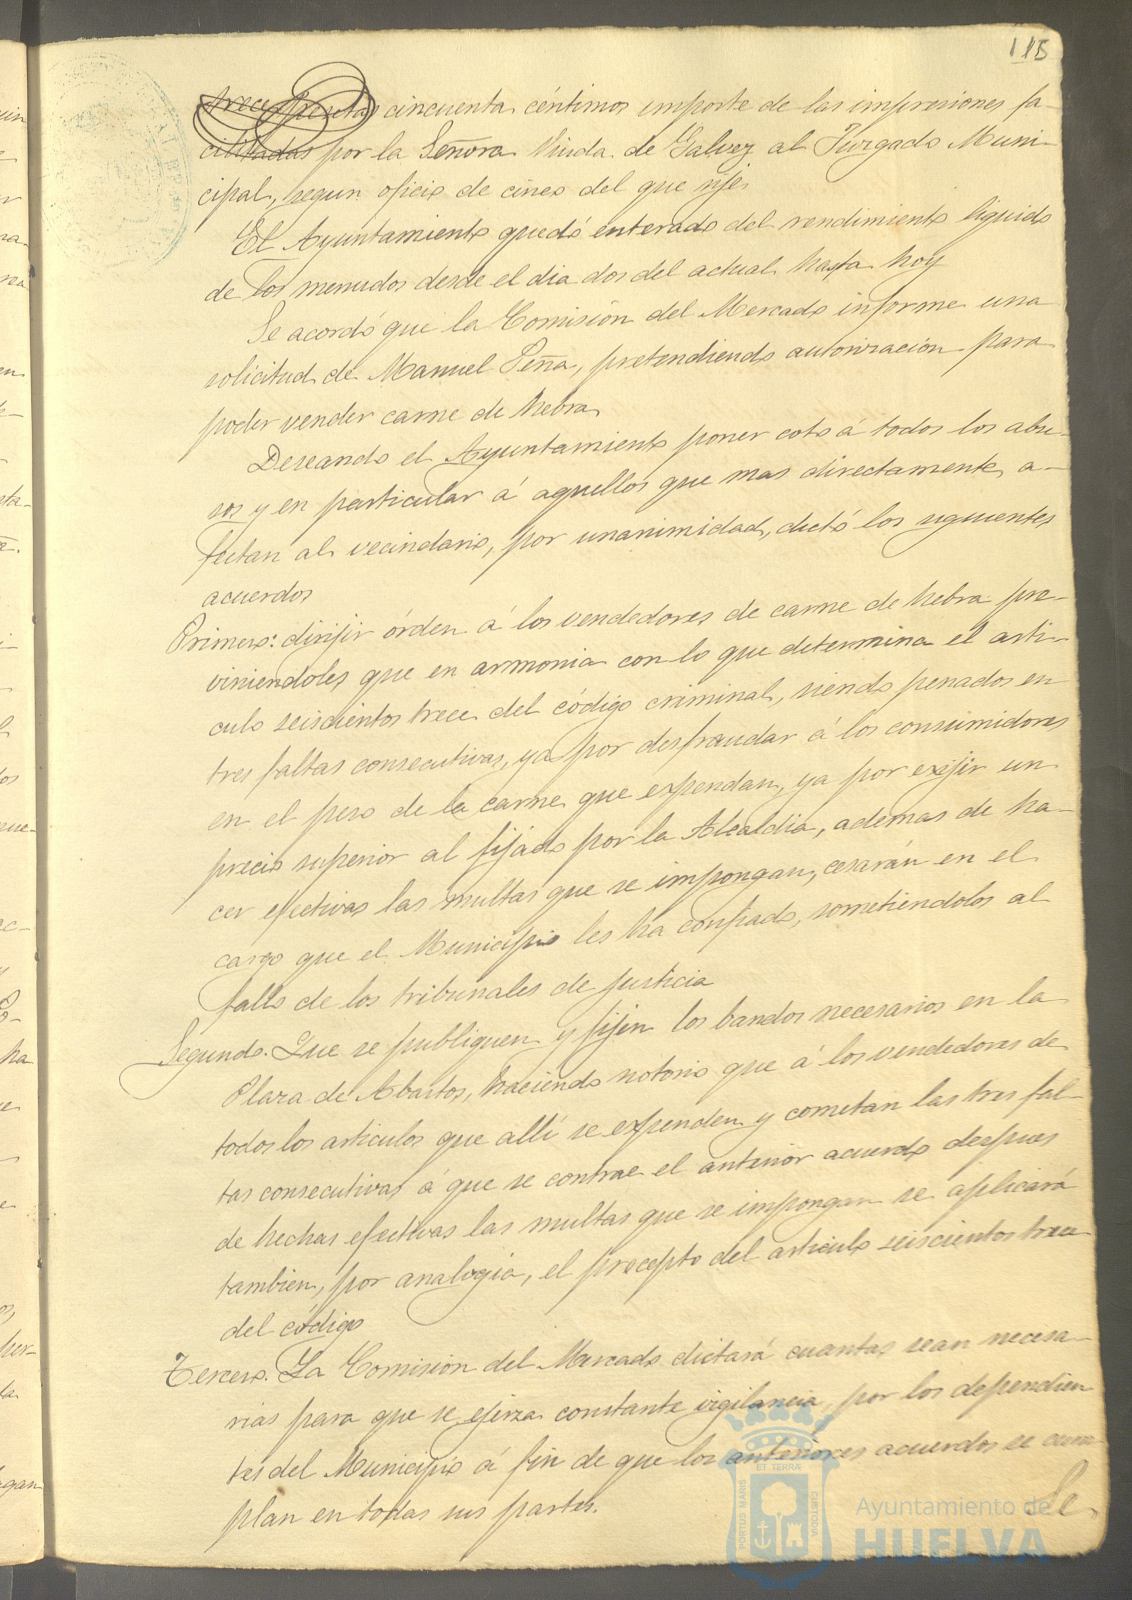 115
trece pesetas cincuenta céntimos importe de las impresiones fa-
cilitadas por la Señora Viuda de Galvez al Juzgado Muni-
cipal, segun oficio de cinco del que rije.
El Ayuntamiento quedó enterado del rendimiento liquido
de los menudos desde el dia dos del actual hasta hoy
Se acordó que la Comisión del Mercado informe una
solicitud de Manuel Peña, pretendiendo autorización para
poder vender carne de hebra
Deseando el Ayuntamiento poner coto á todos los abu-
sos y en particular á aquellos que mas directamente a-
fectan al vecindario, por unanimidad, dictó los siguientes
acuerdos
Primero: dirijir órden á los vendedores de carne de hebra pre-
viniendoles que en armonia con lo que determina el arti-
culo seiscientos trece del código criminal, siendo penados en
tres faltas consecutivas, ya por desfraudar á los consumidores
en el peso de la carne que expendan, ya por exijir un
precio superior al fijado por la Alcaldia, ademas de ha-
cer efectivas las multas que se impongan, cesarán en el
cargo que el Municipio les ha confiado, sometiendolos al
fallo de los tribunales de justicia
Segundo. Que se publiquen y fijen los bandos necesarios en la
Plaza de Abastos, haciendo notorio que á los vendedores de
todos los articulos que allí se expenden y cometan las tres fal-
tas consecutivas á que se contrae el anterior acuerdo despues
de hechas efectivas las multas que se impongan se aplicará
tambien, por analogia, el precepto del articulo seiscientos trece
del código
Tercero. La Comisión del Mercado dictará cuantas sean necesa-
rias para que se ejerza constante vigilancia, por los dependien
tes del Municipio á fin de que los anteriores acuerdos se cum
plan en todas sus partes.
Se
PORTUS MARIS ET TERRÆ CUSTODIA
Ayuntamiento de
HUELVA